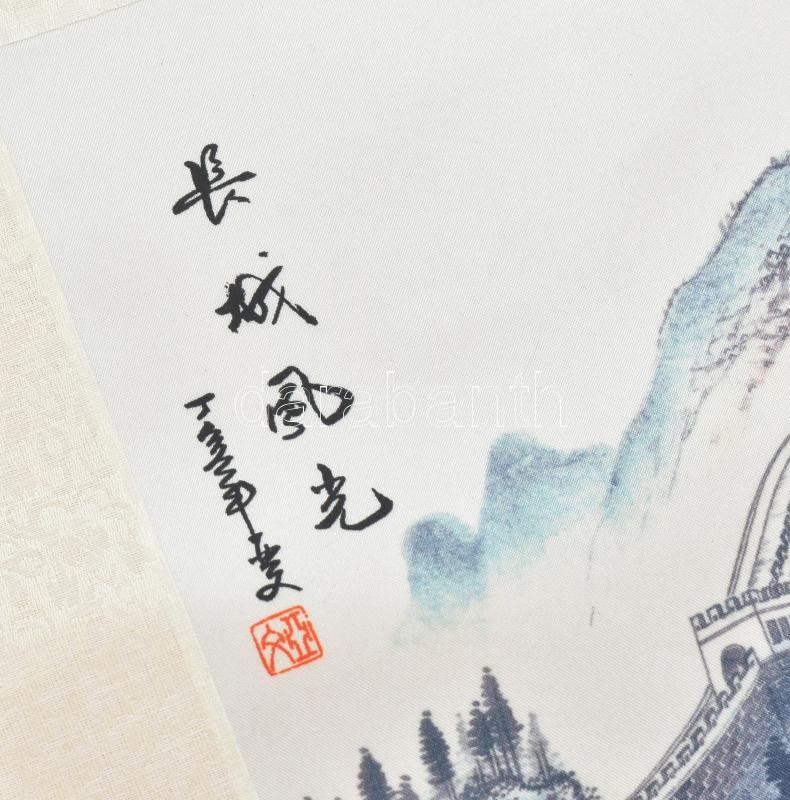 長城風光
丁亥年
亞文
darabanth